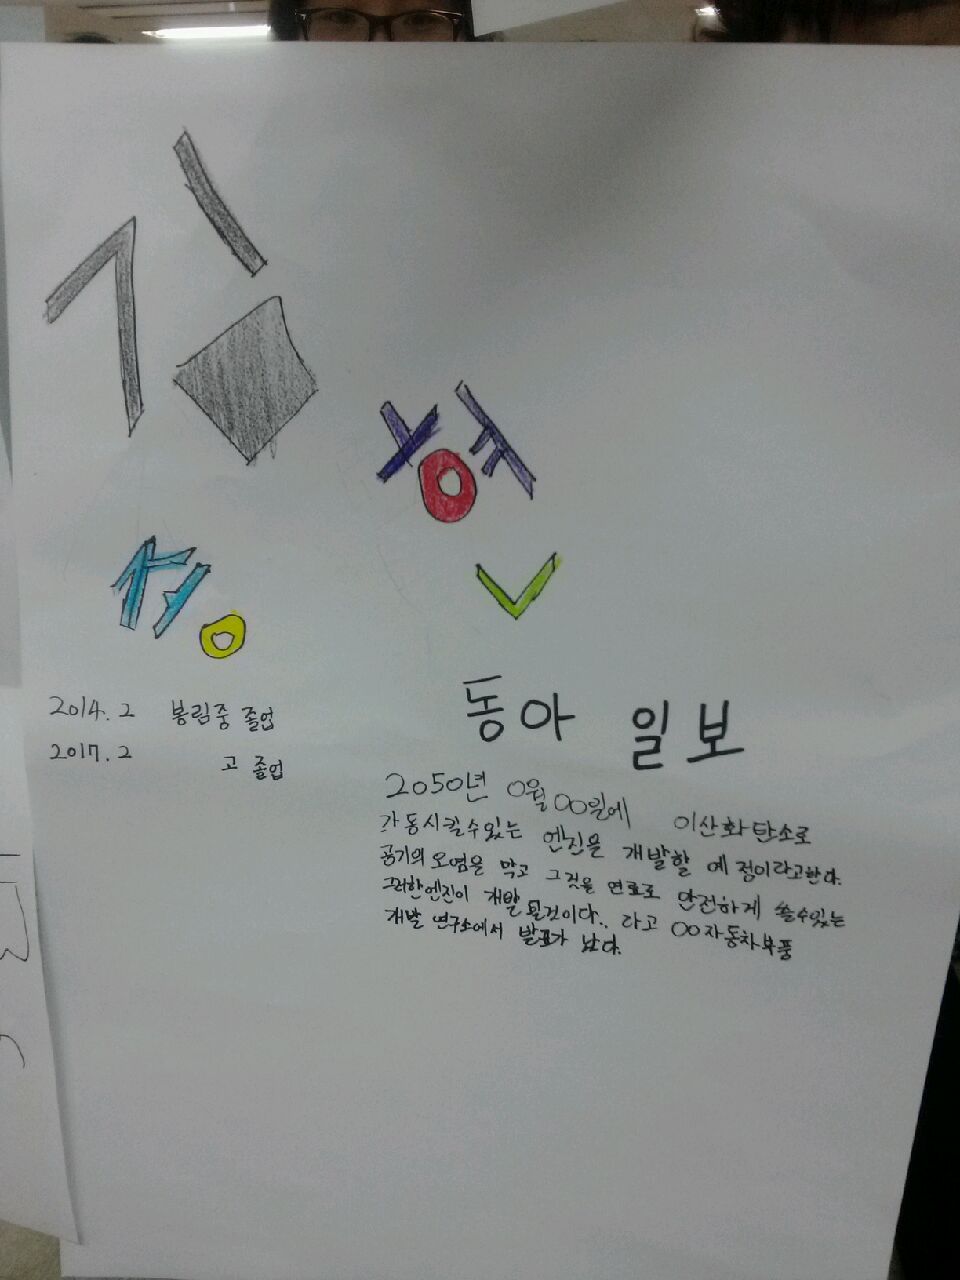 김
2014. 2 봉림중 졸업
2017. 2 고 졸업
동아 일보
2050년 0월 00일에 이산화탄소로
가동시킬수있는 엔진을 개발할 예정이라고한다.
공기의 오염을 막고 그것을 연료로 안전하게 쓸수있는
그러한엔진이 개발될것이다.. 라고 00자동차부품
개발 연구소에서 발표가 났다.